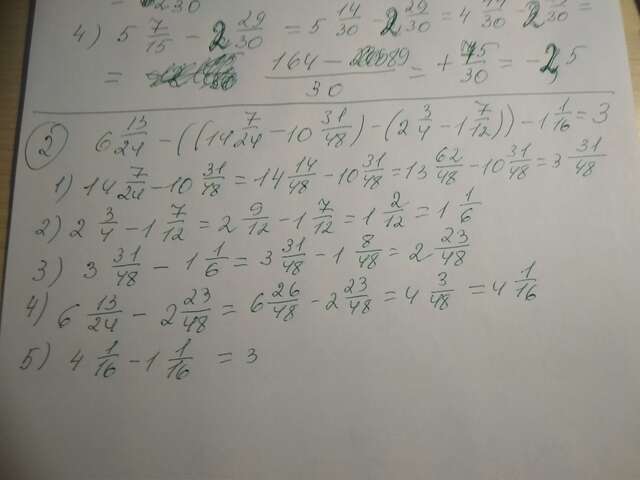 230
4) 5 7/15 - 2 29/30 = 5 14/30 - 2 29/30 = 4 44/30 - 2 =
= 164 - 89/30 = + 75/30 = - 2,5
2) 6 13/24 - ((14 7/24 - 10 31/48) - (2 3/4 - 1 7/12)) - 1 1/16 = 3
1) 14 7/24 - 10 31/48 = 14 14/48 - 10 31/48 = 13 62/48 - 10 31/48 = 3 31/48
2) 2 3/4 - 1 7/12 = 2 9/12 - 1 7/12 = 1 2/12 = 1 1/6
3) 3 31/48 - 1 1/6 = 3 31/48 - 1 8/48 = 2 23/48
4) 6 13/24 - 2 23/48 = 6 26/48 - 2 23/48 = 4 3/48 = 4 1/16
5) 4 1/16 - 1 1/16 = 3